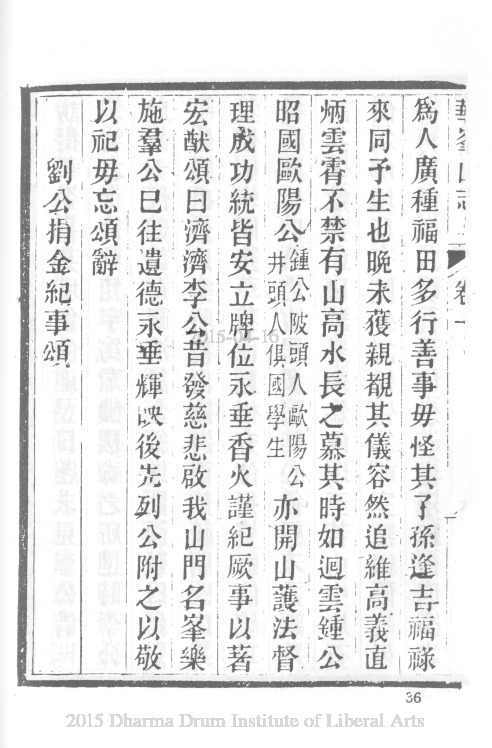 華峯山志 卷一
爲人廣種福田多行善事毋怪其子孫逢吉福祿
來同予生也晚未獲親覩其儀容然追維高義直
炳雲霄不禁有山高水長之慕其時如迴雲鍾公
昭國歐陽公鍾公陂頭人歐陽公井頭人俱國學生亦開山護法督
理成功統皆安立牌位永垂香火謹紀厥事以著
宏猷頌曰濟濟李公昔發慈悲啟我山門名峯樂
施羣公已往遺德永垂輝映後先列公附之以敬
以祀毋忘頌辭
劉公捐金紀事頌
36
2015 Dharma Drum Institute of Liberal Arts